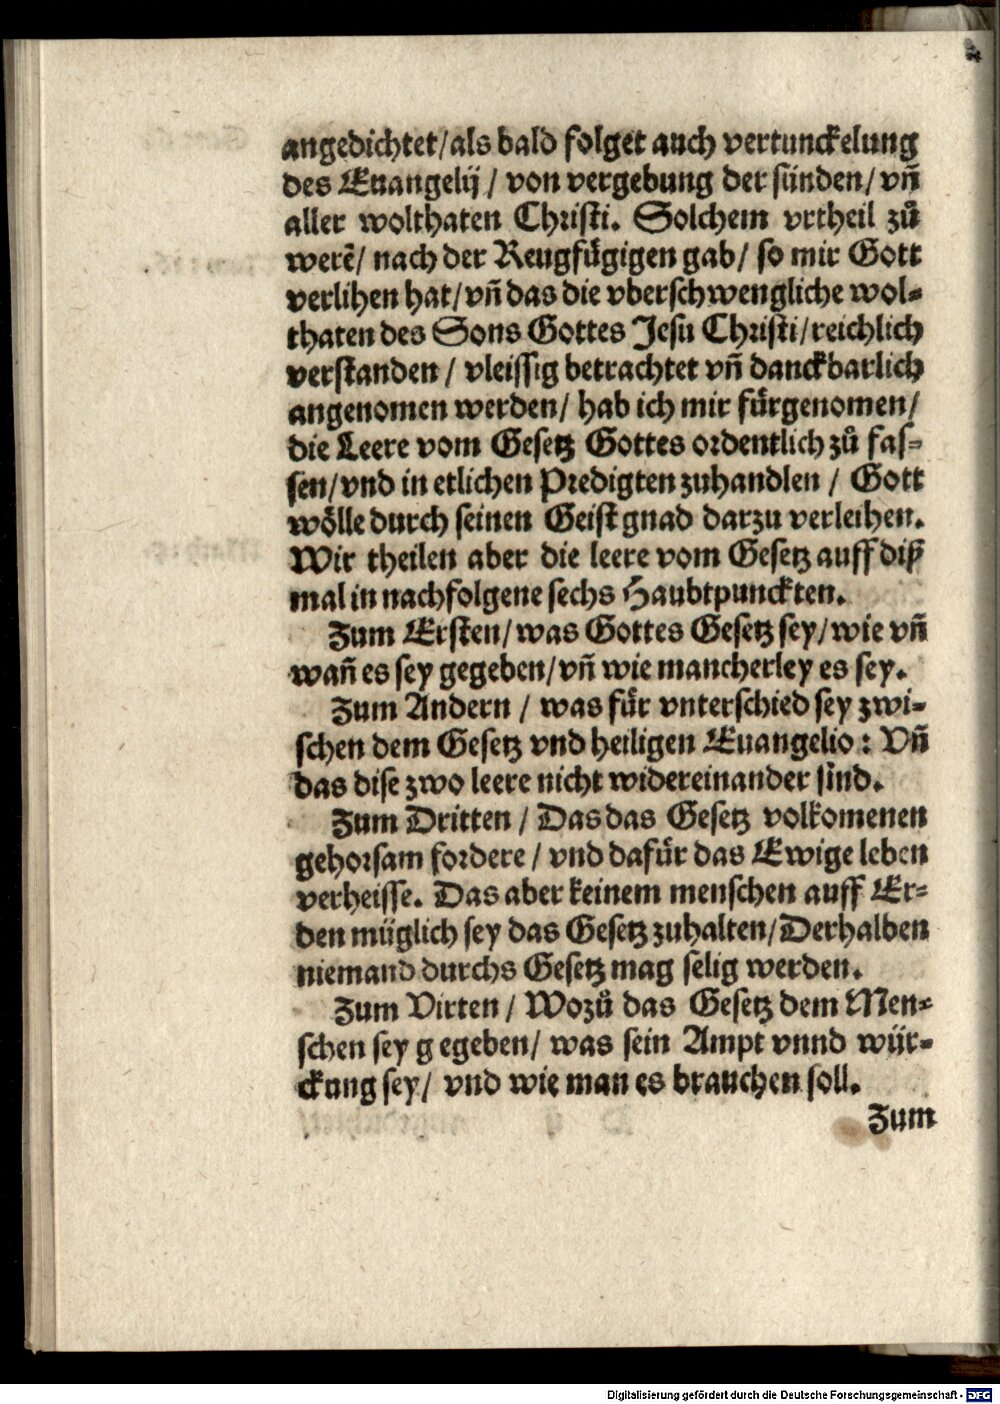 angedichtet/als bald folget auch vertunckelung
des Euangelij / von vergebung der sünden/ vñ
aller wolthaten Christi. Solchem vrtheil zů
werẽ/ nach der Reugfůgigen gab/ so mir Gott
verlihen hat/vñ das die vberschwengliche wol-
thaten des Sons Gottes Jesu Christi/reichlich
verstanden / vleissig betrachtet vñ danckbarlich
angenomen werden/ hab ich mir fürgenomen/
die Leere vom Gesetz Gottes ordentlich zů fas-
sen/vnd in etlichen Predigten zuhandlen / Gott
wölle durch seinen Geist gnad darzu verleihen.
Wir theilen aber die leere vom Gesetz auff diß
mal in nachfolgene sechs Haubtpunckten.
Zum Ersten/was Gottes Gesetz sey/wie vñ
wañ es sey gegeben/vñ wie mancherley es sey.
Zum Andern / was für vnterschied sey zwi-
schen dem Gesetz vnd heiligen Euangelio: Vñ
das dise zwo leere nicht widereinander sind.
Zum Dritten / Das das Gesetz volkomenen
gehorsam fordere / vnd dafür das Ewige leben
verheisse. Das aber keinem menschen auff Er-
den müglich sey das Gesetz zuhalten/Derhalben
niemand durchs Gesetz mag selig werden.
Zum Virten / Wozů das Gesetz dem Men-
schen sey g egeben/ was sein Ampt vnnd wür-
ckung sey/ vnd wie man es brauchen soll.
Zum
Digitalisierung gefördert durch die Deutsche Forschungsgemeinschaft - DFG